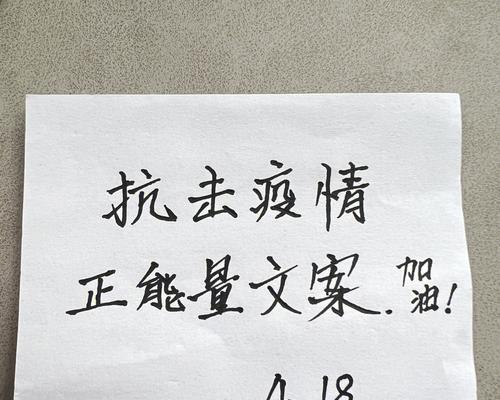 抗击疫情
正能量文案.加油!
4.18